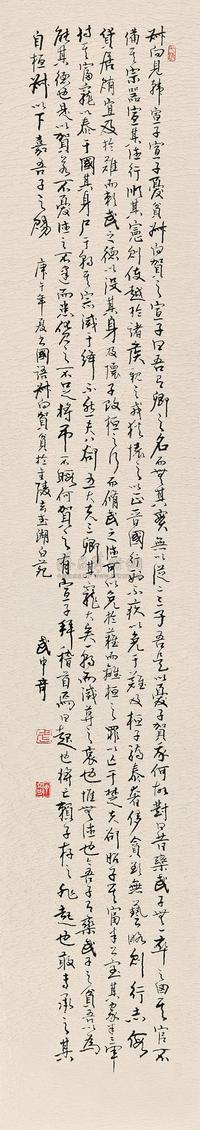 叔向見韓宣子宣子憂貧叔向賀之宣子曰吾有卿之名而無其實無以從二三子吾是以憂子賀我何故對曰昔欒武子無一卒之田其官不
備其宗器宣其德行順其憲則使越於諸侯親之戎狄懷之以正晉國行刑不疚以免於難及桓子驕泰奢侈貪欲無藝略則行志假
貸居賄宜及於難而賴武之德以沒其身及懷子改桓之行而脩武之德可以免於難而離桓之罪以亡于楚夫郤昭子其富半公室其家半三軍
恃其富寵以泰于國其身尸于朝其宗滅于絳不然夫八郤五大夫三卿其寵大矣一朝而滅莫之哀也惟無德也今吾子有欒武子之貧吾以為
能其德也是以賀若不憂德之不建而患貨之不足將弔不暇何賀之有宣子拜稽首焉曰起也將亡賴子存之非起也敢專承之其
自桓叔以下嘉吾子之賜
庚午年夏書國語叔向賀貧於金陵玄武湖白苑
武中奇